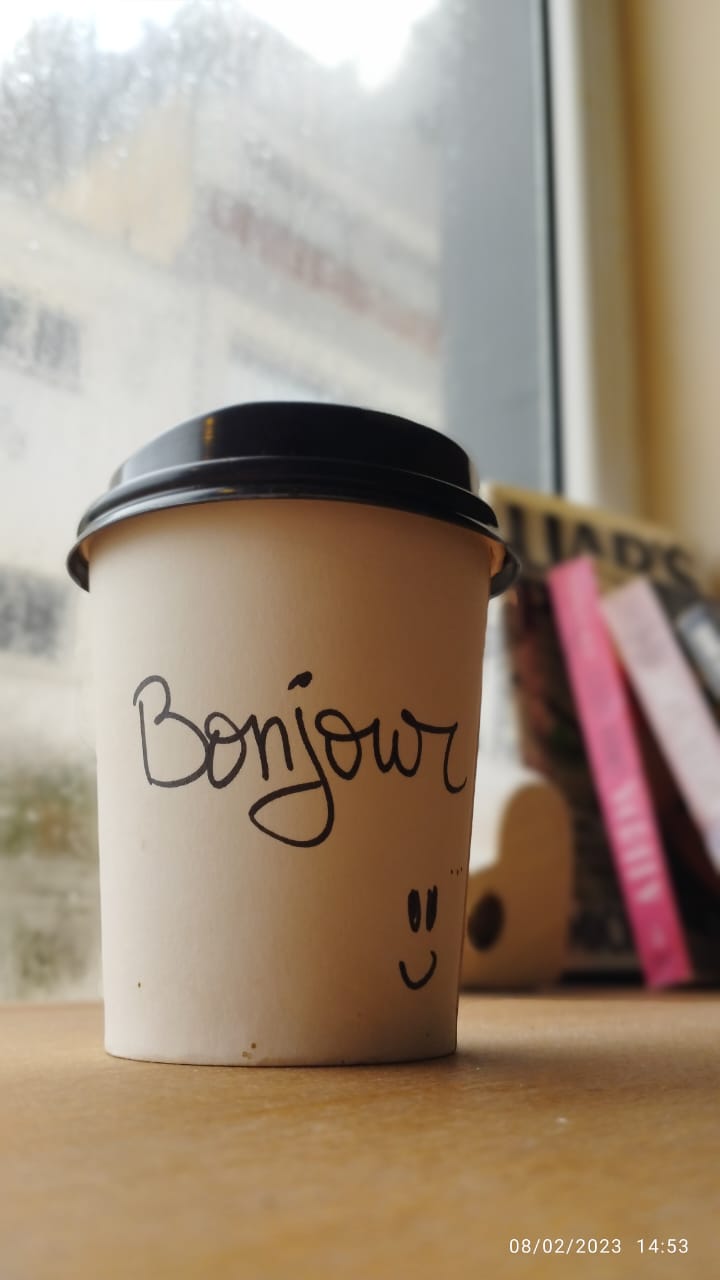 LIAR'S
Bonjour
VERITY
08/02/2023 14:53